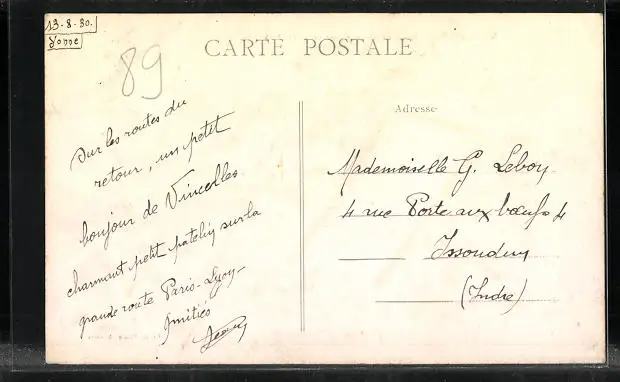 13-8-30.
Yonne
89
CARTE POSTALE
Adresse
Sur les routes du
retour, un petit
bonjour de Vincelles
charmant petit patelin sur la
grande route Paris-Lyon-
Amitiés
Mademoiselle G. Leboy
4 rue Porte aux boeufs 4
Issoudun
(Indre)